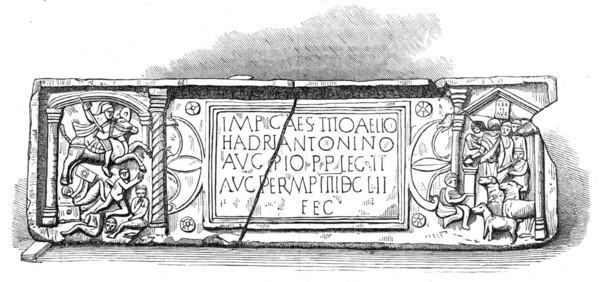 IMP·CAES·TITO AELIO
HADRI ANTONINO
AVG·PIO·P·P·LEG·II
AVG·PER·M·P·IIII DC LII
FEC